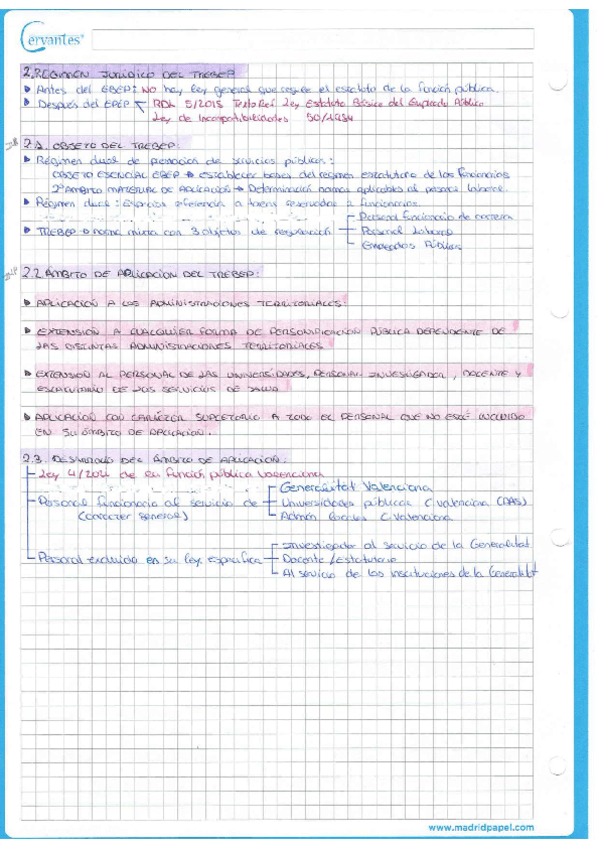 Cervantes®
2. RÉGIMEN JURÍDICO DEL TREBEP
Antes del EBEP: NO hay ley general que regule el estatuto de la función pública.
Después del EPEP RDL 5/2015 Texto Ref. Ley Estatuto Básico del Empleado Público
Ley de Incompatibilidades 50/1984
2.1. OBJETO DEL TREBEP:
Régimen dual de prestación de servicios públicos:
OBJETO ESENCIAL EBEP → establecer bases del régimen estatutario de los funcionarios
2º ÁMBITO MATERIAL DE APLICACIÓN → Determinación normas aplicables al personal laboral.
Régimen dual: Expresa referencia a tareas reservadas a funcionarios.
Personal funcionario de carrera
TREBEP → norma mixta con 3 objetos de regulación Personal Laboral
Empleados Públicos
2.2 ÁMBITO DE APLICACIÓN DEL TREBEP:
APLICACIÓN A LAS ADMINISTRACIONES TERRITORIALES:
EXTENSIÓN A CUALQUIER FORMA DE PERSONIFICACIÓN PÚBLICA DEPENDIENTE DE
LAS DISTINTAS ADMINISTRACIONES TERRITORIALES
EXTENSIÓN AL PERSONAL DE LAS UNIVERSIDADES, PERSONAL INVESTIGADOR, DOCENTE Y
ESTATUTARIO DE LOS SERVICIOS DE SALUD
APLICACIÓN CON CARÁCTER SUPLETORIO A TODO EL PERSONAL QUE NO ESTÉ INCLUIDO
EN SU ÁMBITO DE APLICACIÓN.
2.3. DESARROLLO DEL ÁMBITO DE APLICACIÓN:
Ley 4/2021 de la función pública valenciana
Generalitat Valenciana
Personal funcionario al servicio de Universidades públicas C. valenciana (PAS)
(carácter general) Admón locales C. valenciana
Investigador al servicio de la Generalitat
Personal excluido en su ley específica Docente / estatutario
Al servicio de las instituciones de la Generalitat
www.madridpapel.com